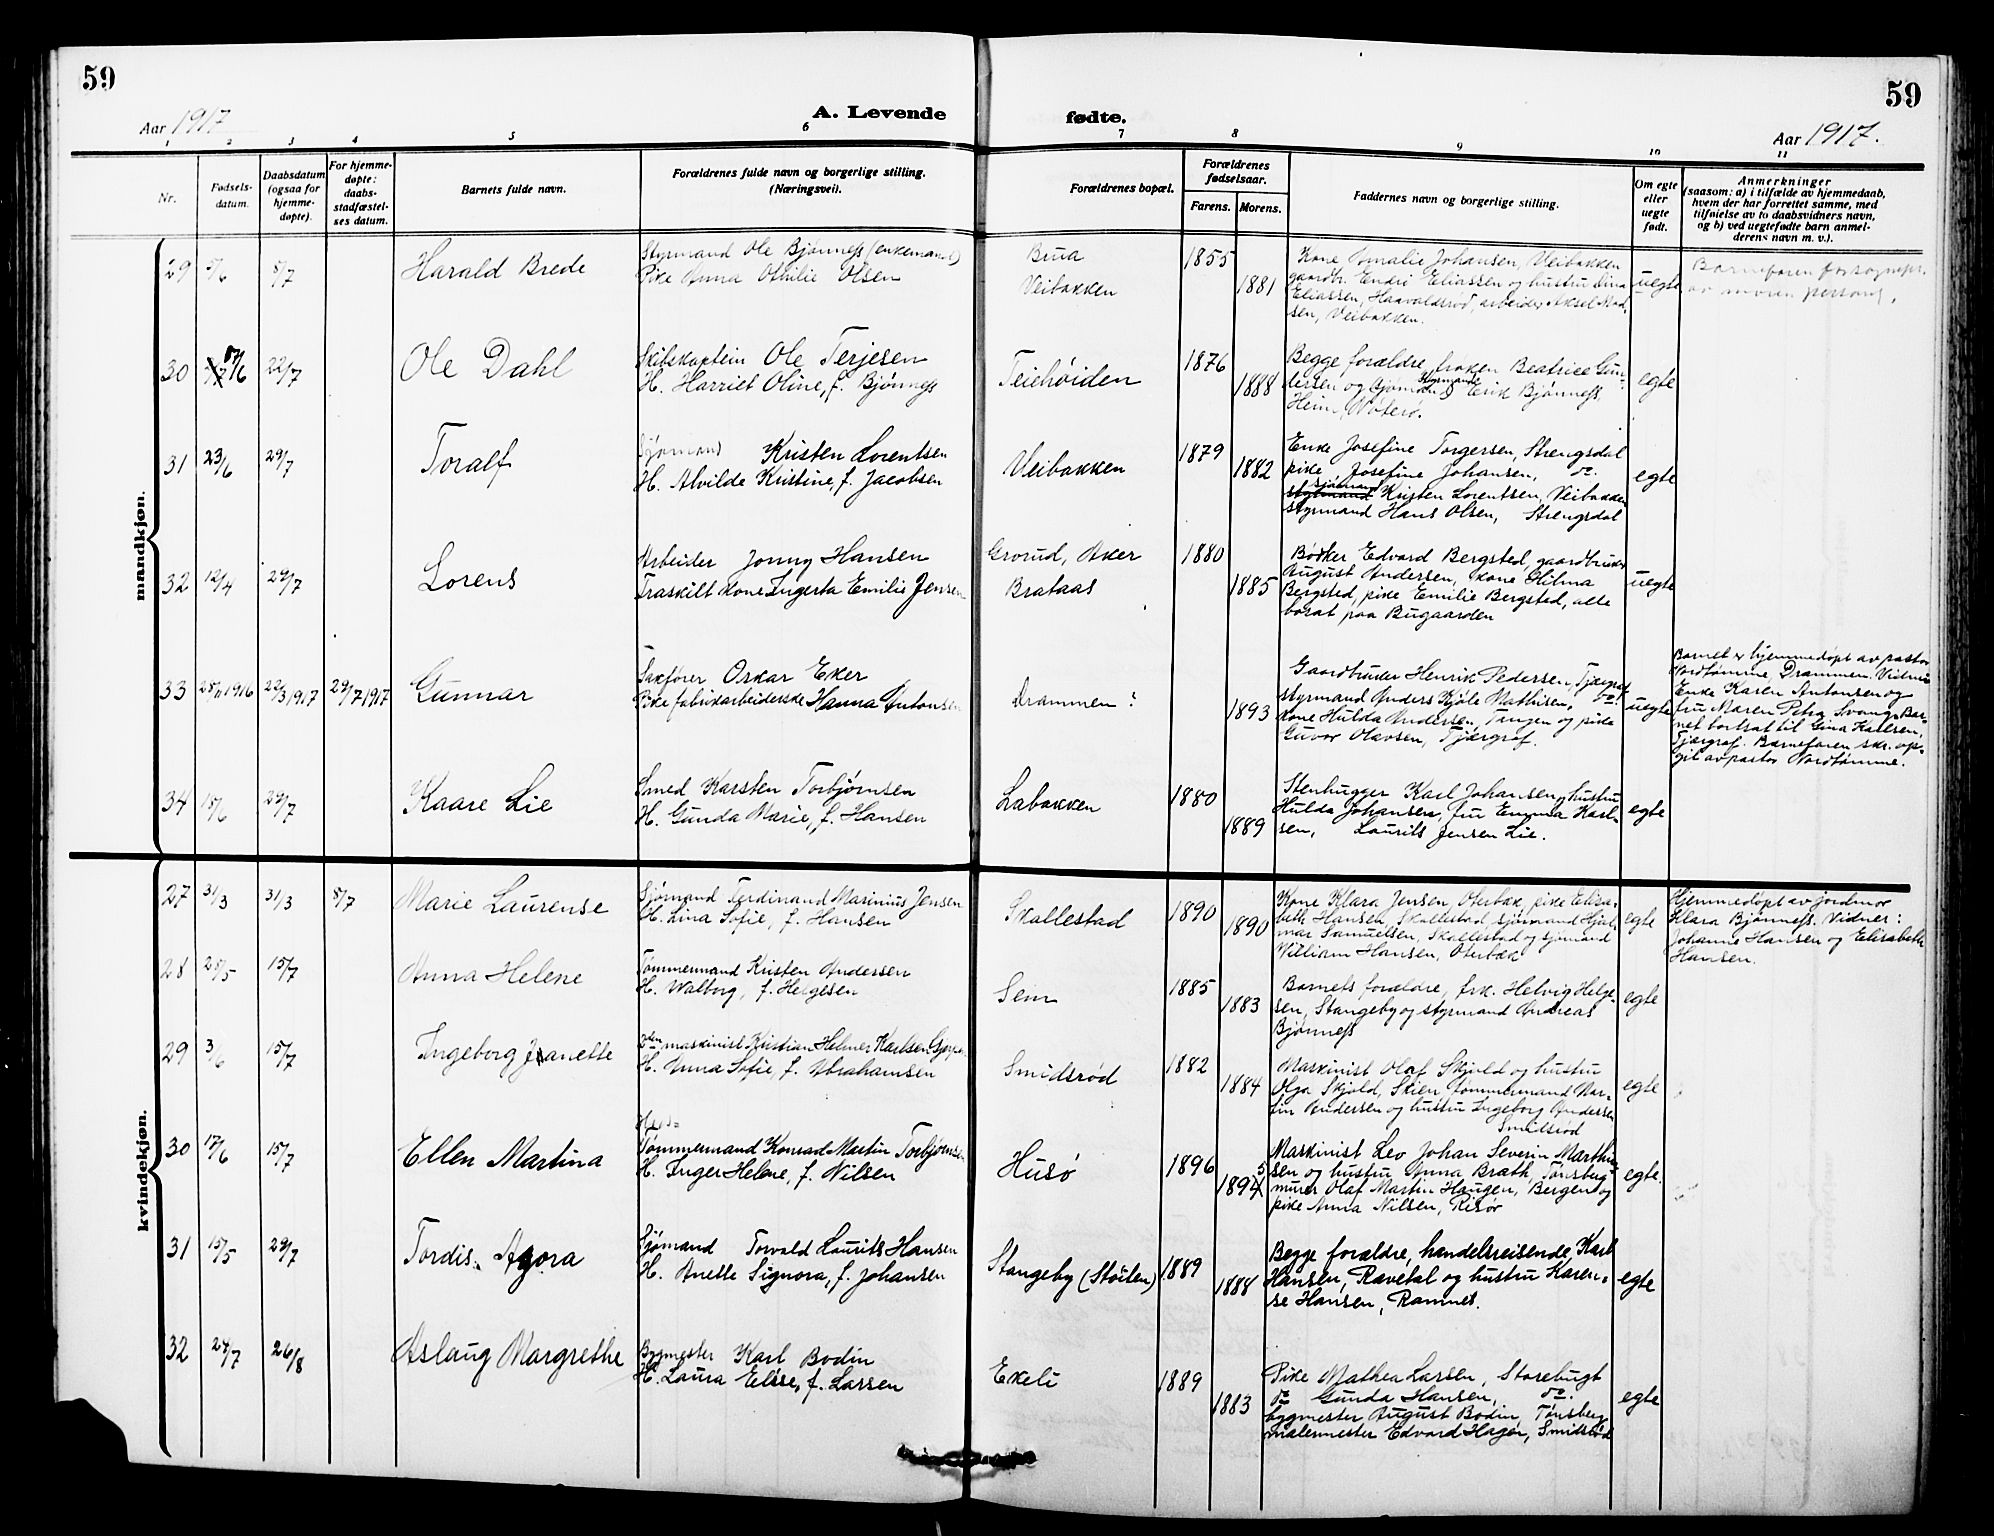 59
59
Aar 1917
A. Levende
fødte.
Aar 1917.
1 2 3 4 5 6 7 8 9 10 11
Nr.
Fødsels-
datum.
Daabsdatum
(ogsaa for
hjemme-
døpte).
For hjemme-
døpte:
daabs-
stadfæstel-
ses datum.
Barnets fulde navn.
Forældrenes fulde navn og borgerlige stilling.
(Næringsvei).
Forældrenes bopæl.
Forældrenes
fødselsaar.
Farens. Morens.
Faddernes navn og borgerlige stilling.
Om egte
eller
uegte
født.
Anmerkninger
(saasom: a) i tilfælde av hjemmedaab,
hvem der har forrettet samme, med
tilføielse av to daabsvidners navn,
og b) ved uegtefødte barn anmel-
derens navn m. v.).
mandkjøn.
29 5/6 8/7 Harald Brede
Styrmand Ole Bjønness (enkemand)
Pike Anna Othilie Olsen
Brua
Veibakken
1855
1881
Kone Amalie Johansen, Veibakken
gaardbr. Endre Eliassen og hustru Dina
Eliassen, Haavaldsrød, arbeider Aksel Mad-
sen, Veibakken.
uegte
Barnefaren
av moren personl.
30 22/7 Ole Dahl
Skibskaptein Ole Terjesen
H. Harriet Oline, f. Bjønness
Teiehøiden
1876
1888
Begge forældre, frøken Beatrice Gun-
dersen og styrmand Erik Bjønness,
Heim, Nøterø.
egte
31 23/6 29/7 Toralf
Sjømand Kristen Lorentsen
H. Alvilde Kristine, f. Jacobsen
Veibakken
1879
1882
Enke Josefine Torgersen, Strengsdal
pike Josefine Johansen, do.
sjømand
styrmand Kristen Lorentsen, Veibakken
styrmand Hans Olsen, Strengsdal
egte
32 12/4 29/7 Lorens
Arbeider Jonny Hansen
Fraskilt kone Ingerta Emilie Jensen
Grorud, Aker
Brataas
1880
1885
Bødker Edvard Bergsted, gaardbruker
August Andersen, kone Hilma
Bergsted, pike Emilie Bergsted, alle
bosat paa Bugaarden
uegte
33 28/11 1916 22/3 1917 29/7 1917 Gunnar
Saxfører Oskar Eker
Pike fabrikarbeiderske Hanna Antonsen
Drammen?
1893
Gaardbruker Henrik Pedersen, Tjærgraf
styrmand Anders Kjøle Mathisen, do.
kone Hulda Andersen, Tangen og pike
Guvor Olavsen, Tjærgraf.
uegte
Barnet er hjemmedøpt av pastor
Nordtømme, Drammen. Vidner
Enke Karen Antonsen og
fru Maren Petra Svang. Bar-
net bortsat til Gina Karlsen,
Tjærgraf. Barnefaren skr. op-
git av pastor Nordtømme.
34 15/6 29/7 Kaare Lie
Smed Karsten Torbjørnsen
H. Gunda Marie, f. Hansen
Labakken
1880
1889
Stenhugger Karl Johansen og hustru
Hulda Johansen, fru Emma Karl-
sen, Laurits Jensen Lie.
egte
kvindekjøn.
27 31/3 31/3 8/7 Marie Laurense
Sjømand Ferdinand Marinius Jensen
H. Lina Sofie, f. Hansen
Skallestad
1890
1890
Kone Klara Jensen, Oterbæk, pike Elisa-
beth Hansen, Skallestad, sjømand Hjal-
mar Samuelsen, Skallestad og sjømand
William Hansen, Oterbæk
egte
Hjemmedøpt av jordmor
Klara Bjønness. Vidner:
Johanne Hansen og Elisabeth
Hansen.
28 28/5 15/7 Anna Helene
Tømmermand Kristen Andersen
H. Walborg, f. Helgesen
Sem
1885
1883
Barnets forældre, frk. Helvig Helge-
sen, Stangeby og styrmand Andreas
Bjønness
egte
29 3/6 15/7 Ingeborg Janette
2den maskinist Kristian Helmer Karlsen
H. Anna Sofie, f. Abrahamsen
Smidsrød
1882
1884
Maskinist Olaf Skjold og hustru
Olga Skjold, Skien, tømmermand Mar-
tin Andersen og hustru Ingeborg Andersen
Smidsrød
egte
30 17/6 15/7 Ellen Martina
Tømmermand Konrad Martin Torbjørnsen
H. Inger Helene, f. Nilsen
Husø
1896
1895
Maskinist Leo Johan Severin Marthin-
sen og hustru Anna Bræth, Tønsberg
murer Olaf Martin Haugen, Bergen og
pike Anna Nilsen, Risør
egte.
31 15/5 29/7 Tordis Agora
Sjømand Torvald Laurits Hansen
H. Anette Signora, f. Johansen
Stangeby (Støiten)
1889
1884
Begge forældre, handelsreisende Karl
Hansen, Ravedal og hustru Karen-
se Hansen, Ramnes.
egte
32 24/7 26/8 Aslaug Margrethe
Bygmester Karl Bodin
H. Laura Elise, f. Larsen
Ekeli
1889
1883
Pike Mathea Larsen, Storebugt
do Gunda Hansen, do.
bygmester August Bodin, Tønsberg
malermester Edvard Hagen, Smidsrød
egte